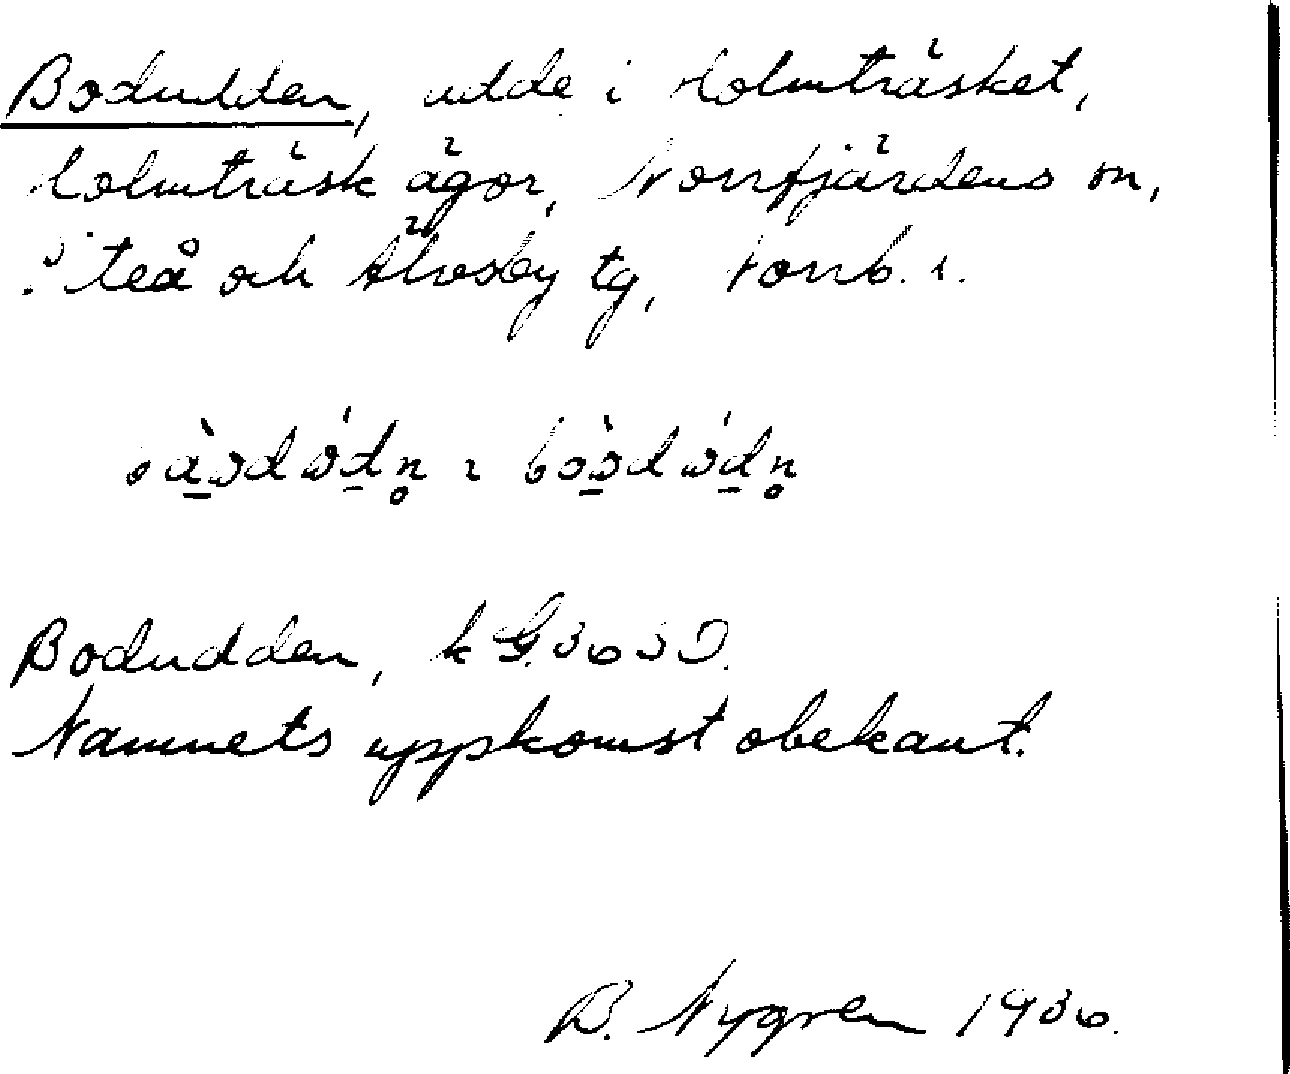 Bodudden, udde i Holmträsket,
Holmträsk ägor, Norrfjärdens sn,
Piteå och Älvsby tg, Norrb. l.
Bodudden, k G.
Namnets uppkomst obekant.
B. Nygren 1936.